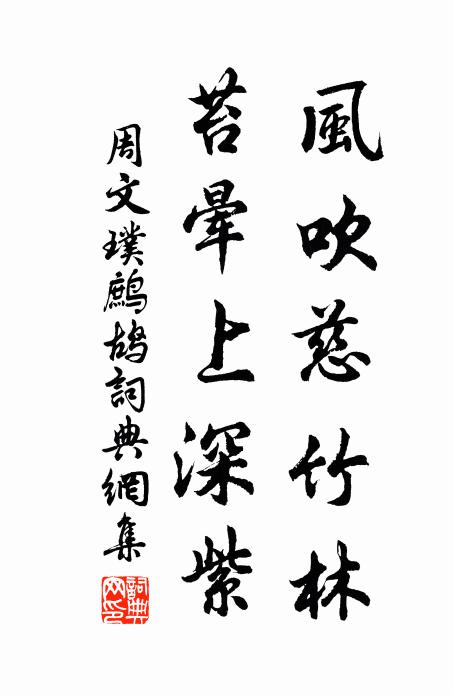 風吹慈竹林
苔暈上深紫
周文璞鷓鴣詞典網集
詞典網印